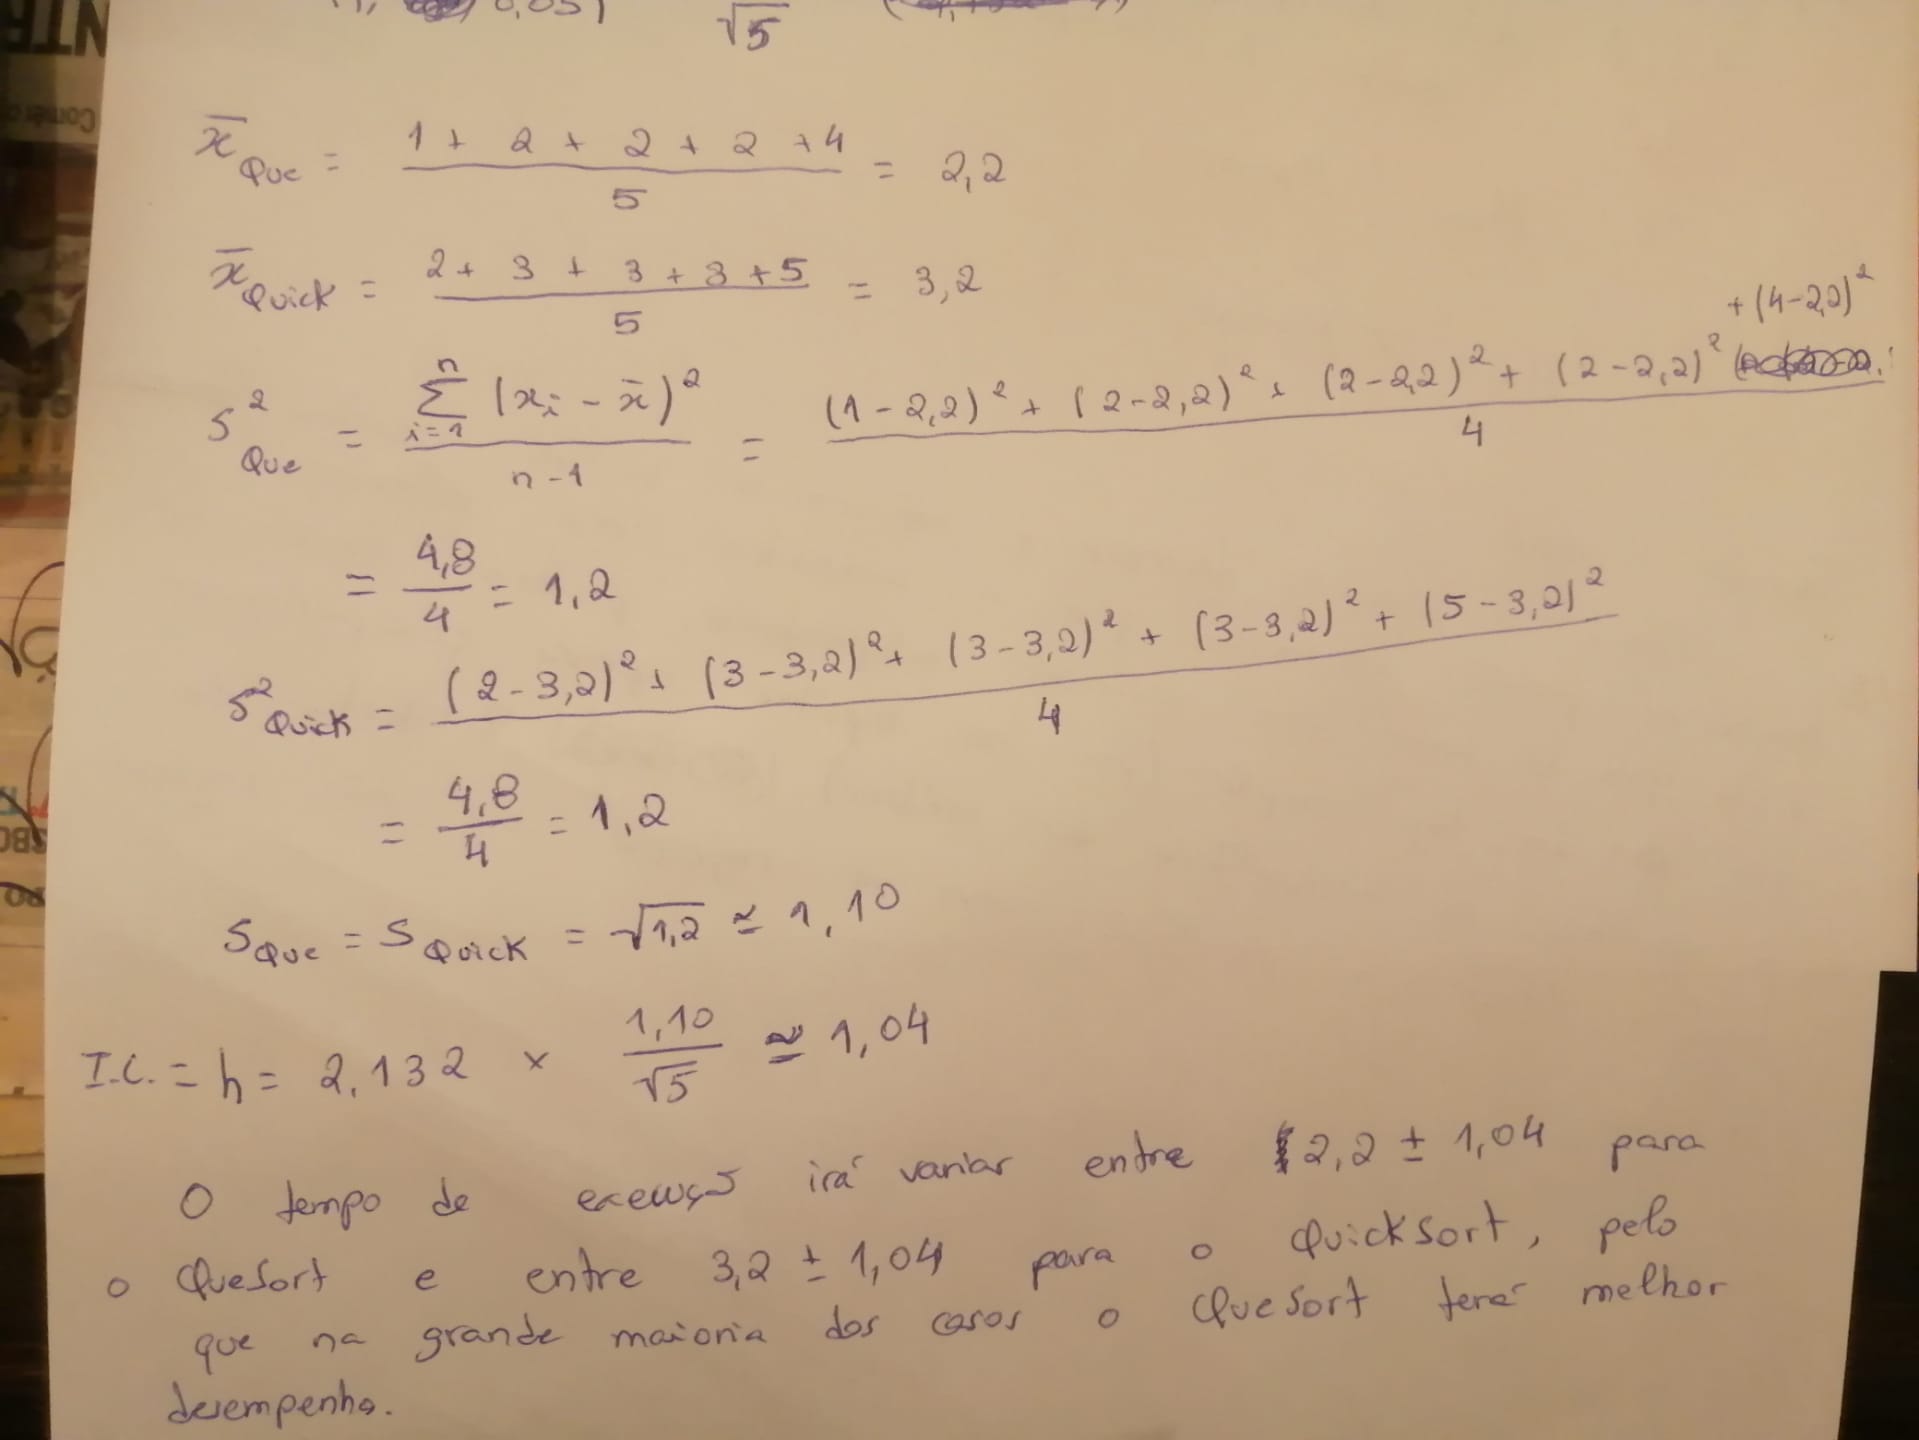 0,05)
√5
x̄ Que = (1 + 2 + 2 + 2 + 4) / 5 = 2,2
x̄ Quick = (2 + 3 + 3 + 3 + 5) / 5 = 3,2
+ (4-2,2)²
S² Que = Σ i=1 n (xi - x̄)² / (n-1) = ((1-2,2)² + (2-2,2)² + (2-2,2)² + (2-2,2)²) / 4
= 4,8 / 4 = 1,2
S² Quick = ((2-3,2)² + (3-3,2)² + (3-3,2)² + (3-3,2)² + (5-3,2)²) / 4
= 4,8 / 4 = 1,2
S Que = S Quick = √1,2 ≃ 1,10
I.C. = h = 2.132 × 1,10 / √5 ≅ 1,04
O tempo de execuçõ irá variar entre 2,2 ± 1,04 para
o QueSort e entre 3,2 ± 1,04 para o QuickSort, pelo
que na grande maioria dos casos o QueSort terá melhor
desempenho.